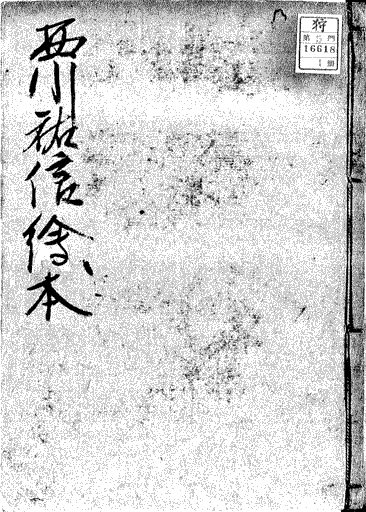 西川祐信繪本
狩
第5門
16618
1冊